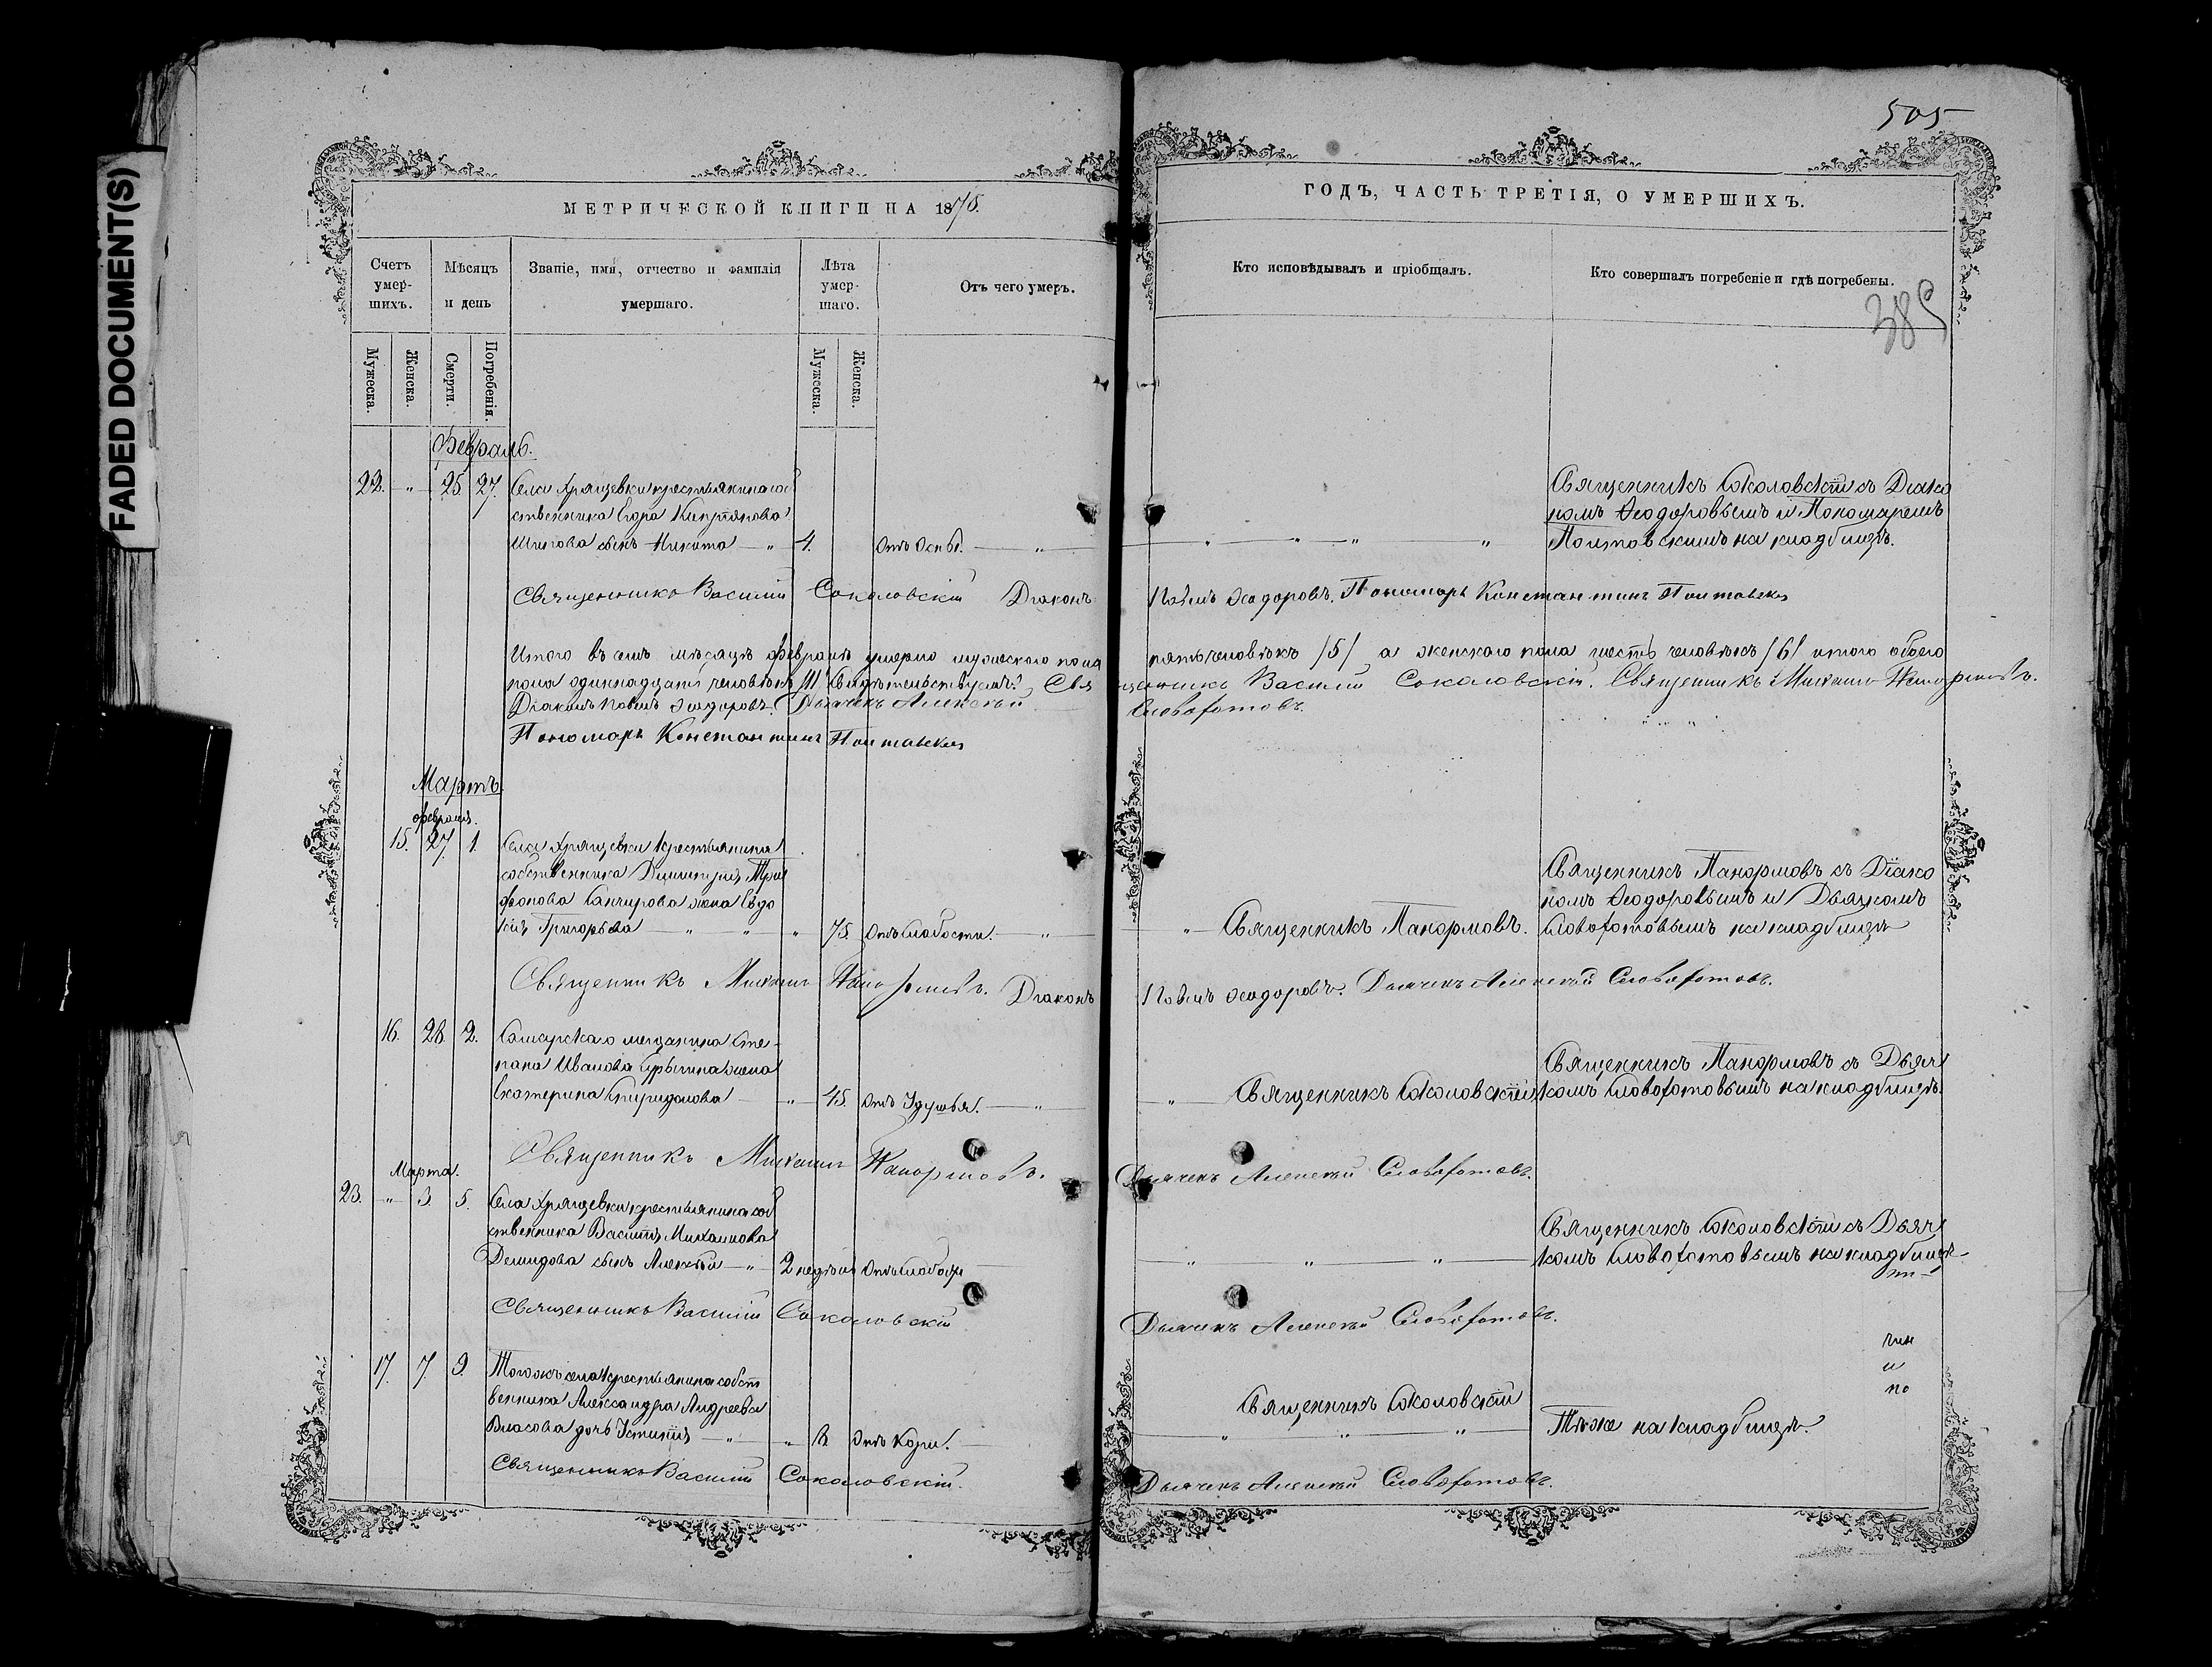 FADED DOCUMENT(S)
505
МЕТРИЧЕСКОЙ КНИГИ НА 1875.
ГОДЪ, ЧАСТЬ ТРЕТІЯ, О УМЕРШИХЪ.
Счетъ умер-шихъ.
Мѣсяцъ и день
Званіе, имя, отчество и фамилія умершаго.
Лѣта умер-шаго.
Отъ чего умеръ.
Кто исповѣдывалъ и пріобщалъ.
Кто совершалъ погребеніе и гдѣ погребены.
385
Мужеска.
Женска.
Смерти.
Погребенія.
Мужеска.
Женска.
Февраль.
22. " 25. 27. Села Хрящевки крестьянина со
ственника Егора Кипріянова
Шигова сынъ Никита — " 4. Отъ Оспы. — "
Священникъ Соколовскій съ Діако
номъ Ѳеодоровымъ и Пономаремъ
Полтавскимъ на кладбищѣ.
Священникъ Василій Соколовскій Діаконъ
Павелъ Ѳеодоровъ. Пономарь Константинъ Полтавскій
Итого въ семъ мѣсяцѣ февралѣ умерло мужескаго пола
пять человѣкъ /5/ а женскаго пола шесть человѣкъ /6/ итого обоего
пола одиннадцать человѣкъ /11/ Свидѣтельствуемъ: Свя
щенникъ Василій Соколовскій. Священникъ Михаилъ Панормовъ.
Діаконъ Павелъ Ѳеодоровъ. Дьячекъ Алексѣй
Словохотовъ.
Пономарь Константинъ Полтавскій
Мартъ.
февраля.
15. 27. 1. Села Хрящевки крестьянина
собственника Димитрія Три
фонова Санчирова жена Евдо
кія Григорьева — " " " 75. Отъ слабости. — "
" — Священникъ Панормовъ.
Священникъ Панормовъ съ Діако
номъ Ѳеодоровымъ и Дьячкомъ
Словохотовымъ на кладбищѣ
Священникъ Михаилъ Панормовъ. Діаконъ
Павелъ Ѳеодоровъ. Дьячекъ Алексѣй Словохотовъ.
16. 28. 2. Самарскаго мещанина Сте-
пана Иванова жена
Екатерина Спиридонова — " 45. Отъ Удушья. — "
" — Священникъ Соколовскій
Священникъ Панормовъ съ Дьяч
комъ Словохотовымъ на кладбищѣ.
Священникъ Михаилъ Панормовъ.
Дьячекъ Алексѣй Словохотовъ.
Марта.
23. " 3. 5. Села Хрящевки крестьянина соб
ственника Василія Михайлова
Демидова сынъ Алексѣй — " 2 недѣли Отъ слабости
Священникъ Соколовскій съ Дьяч
комъ Словохотовымъ на кладбищѣ
Священникъ Василій Соколовскій
Дьячекъ Алексѣй Словохотовъ.
17. 7. 9. Тогожъ села крестьянина собст
венника Александра Андреева
Власова дочь Устинія — " " 8 Отъ Кори.
Священникъ Соколовскій
Тѣже на кладбищѣ.
Священникъ Василій Соколовскій.
Дьячекъ Алексѣй Словохотовъ.